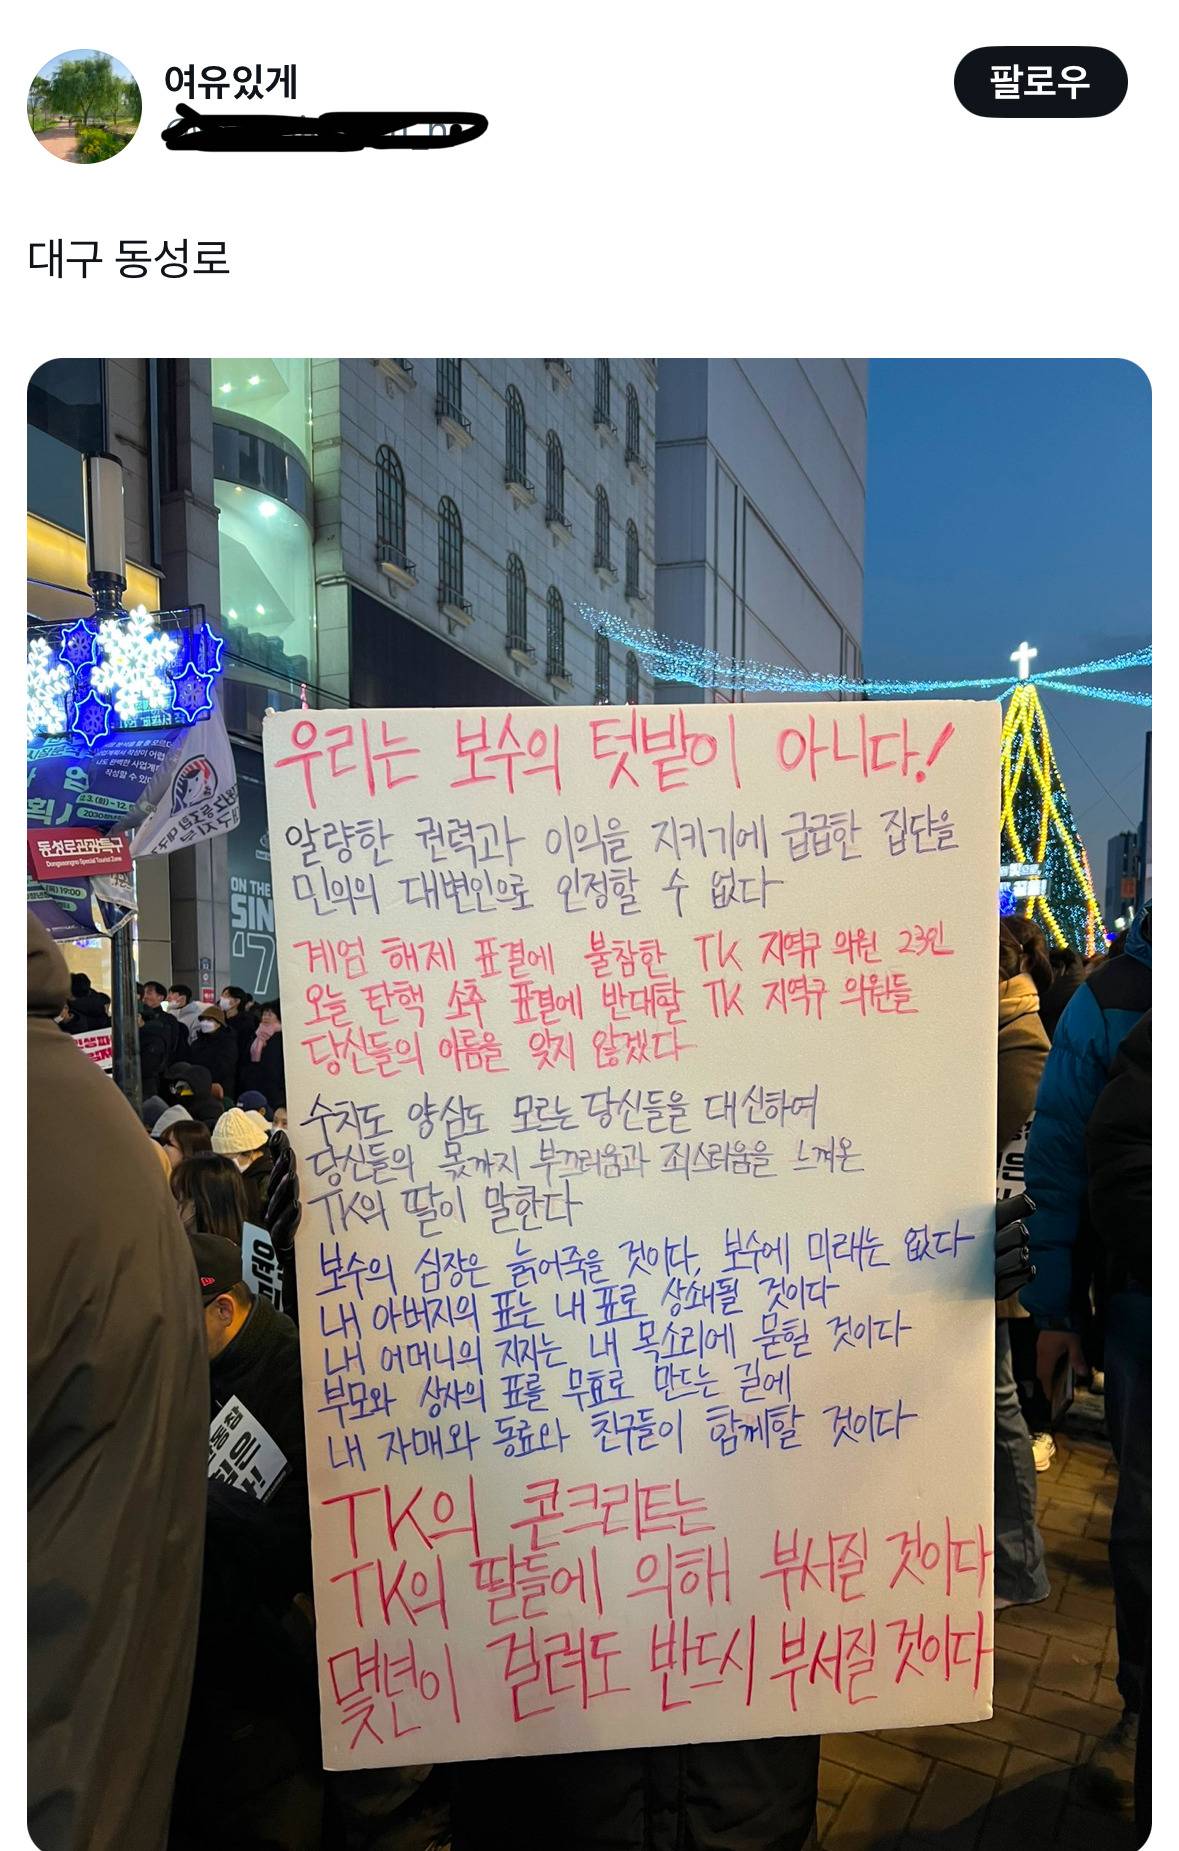 여유있게
팔로우
대구 동성로
우리는 보수의 텃밭이 아니다!
알량한 권력과 이익을 지키기에 급급한 집단을
민의의 대변인으로 인정할 수 없다
계엄 해제 표결에 불참한 TK 지역구 의원 23인
오늘 탄핵 소추 표결에 반대할 TK 지역구 의원들
당신들의 이름을 잊지 않겠다
수치도 양심도 모르는 당신들을 대신하여
당신들의 몫까지 부끄러움과 죄스러움을 느껴온
TK의 딸이 말한다
보수의 심장은 늙어죽을 것이다, 보수에 미래는 없다
내 아버지의 표는 내 표로 상쇄될 것이다
내 어머니의 지지는 내 목소리에 묻힐 것이다
부모와 상사의 표를 무효로 만드는 길에
내 자매와 동료와 친구들이 함께할 것이다
TK의 콘크리트는
TK의 딸들에 의해 부서질 것이다
몇년이 걸려도 반드시 부서질 것이다
동성로관광특구
Dongseongno Special Tourist Zone
19:00
ON THE
SIN
'7